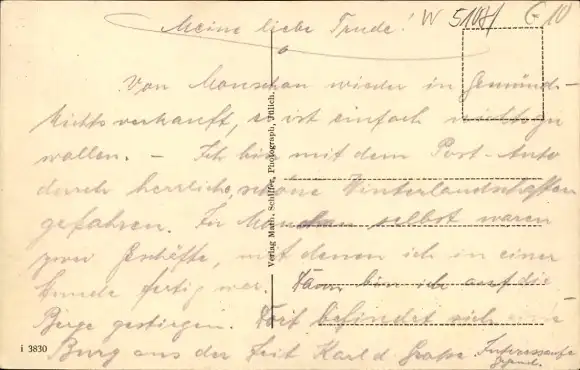 Meine liebe Trude!
W 5108/
€ 10
Von Monschau wieder in Gemünd-
Nichts verkauft, es ist einfach nichts zu
wollen. - Ich bin mit dem Post-Auto
durch herrliche, schöne Winterlandschaften
gefahren. In Monschau selbst waren
zwei Geschäfte, mit denen ich in einer
Stunde fertig war. Dann bin ich auf die
Berge gestiegen. Dort befindet sich eine
Burg aus der Zeit Karl d. Große. Interessante
Gegend.
Verlag Math. Schiffer, Photograph, Jülich.
i 3830